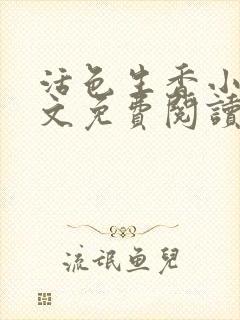 活色生香小
文免費閱讀
流氓鱼兒